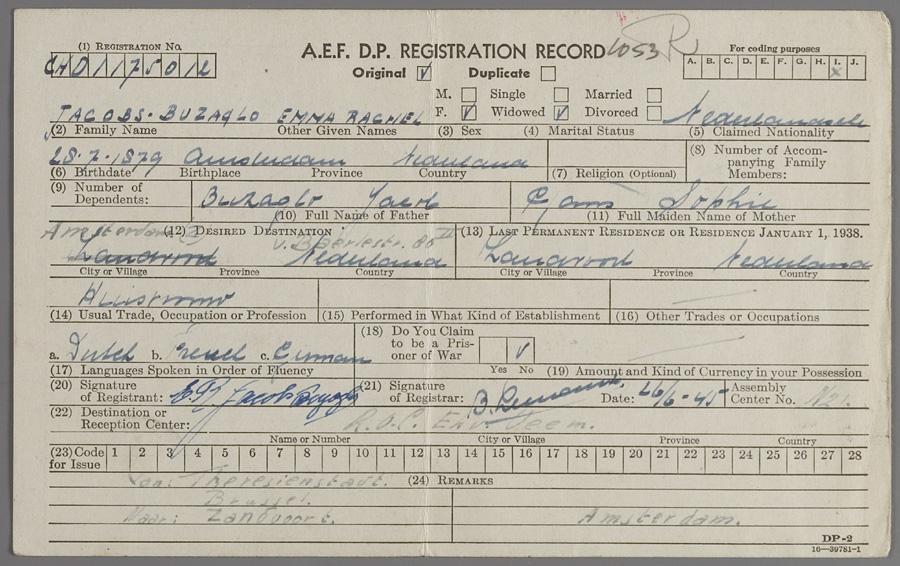 (1) Registration No.
A.E.F. D.P. REGISTRATION RECORD 1053 R
For coding purposes
Original ☑ Duplicate ☐
A. B. C. D. E. F. G. H. I. J.
M. ☐ Single ☐ Married ☐
F. ☑ Widowed ☑ Divorced ☐
JACOBS-BUZAGLO EMMA RACHEL
(2) Family Name Other Given Names (3) Sex (4) Marital Status (5) Claimed Nationality
28-7-1879 Amsterdam Nederland
(6) Birthdate Birthplace Province Country (7) Religion (Optional) (8) Number of Accompanying Family Members:
(9) Number of Dependents:
Buzaglo Jacob Sophie
(10) Full Name of Father (11) Full Maiden Name of Mother
Amsterdam
(12) Desired Destination (13) Last Permanent Residence or Residence January 1, 1938.
Zandvoort Nederland Zandvoort Nederland
City or Village Province Country City or Village Province Country
Huisvrouw
(14) Usual Trade, Occupation or Profession (15) Performed in What Kind of Establishment (16) Other Trades or Occupations
a. Dutch b. c. German
(17) Languages Spoken in Order of Fluency (18) Do You Claim to be a Prisoner of War V Yes No (19) Amount and Kind of Currency in your Possession
(20) Signature of Registrant: (21) Signature of Registrar: Date: 26/6-45 Assembly Center No. N21.
(22) Destination or Reception Center:
Name or Number City or Village Province Country
(23) Code for Issue 1 2 3 4 5 6 7 8 9 10 11 12 13 14 15 16 17 18 19 20 21 22 23 24 25 26 27 28
Van: Theresienstadt. (24) Remarks
Brussel.
Naar: Zandvoort. Amsterdam.
DP-2
16—39781-1